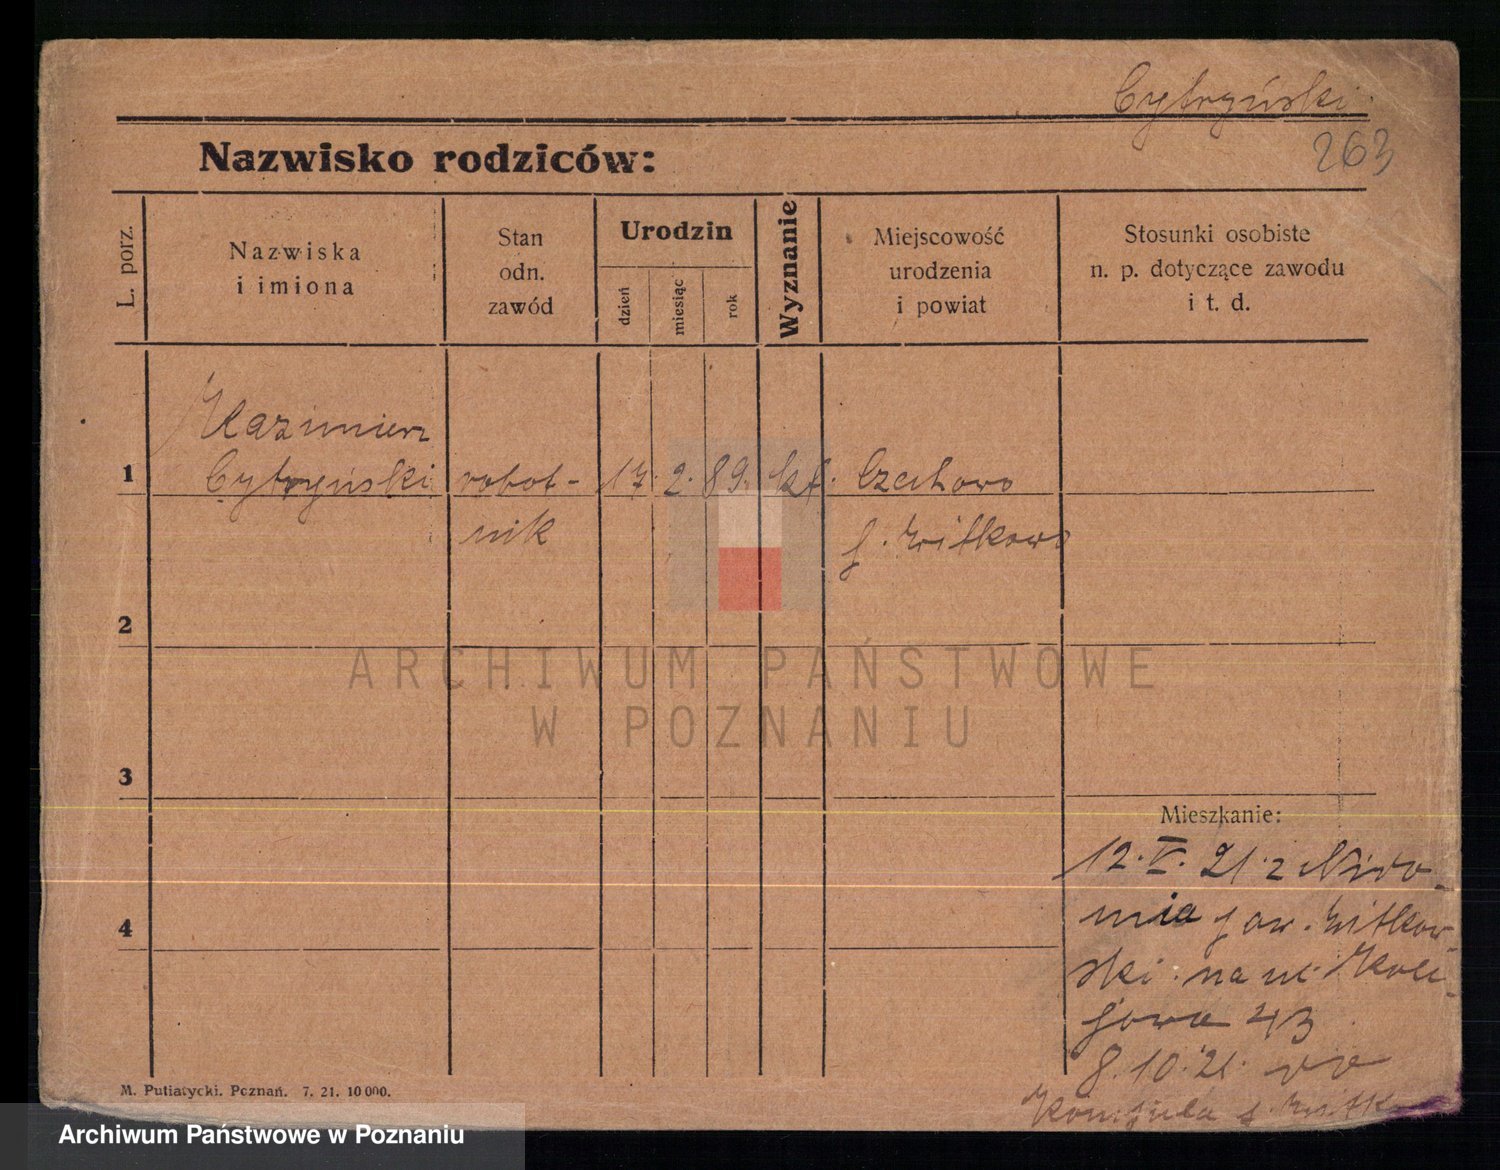 Cytryński
263
Nazwisko rodziców:
L. porz.
Nazwiska
i imiona
Stan
odn.
zawód
Urodzin
dzień
miesiąc
rok
Wyznanie
Miejscowość
urodzenia
i powiat
Stosunki osobiste
n. p. dotyczące zawodu
i t. d.
Kazimierz
1 Cytryński robot- 17. 2. 89. kt. Czechowo
nik p. Witkowo
2
ARCHIWUM PAŃSTWOWE
W POZNANIU
3
Mieszkanie:
12. V. 21. z
4
pow. Witkow-
ski. na ul. Kole-
jowa 43
8. 10. 21.
p. Witk
M. Putiatycki. Poznań. 7. 21. 10 000.
Archiwum Państwowe w Poznaniu